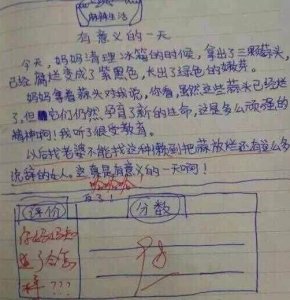 麻辣生活
有意义的一天
今天，妈妈清理冰箱的时候，拿出了三颗蒜头，
已经腐烂变成了紫黑色，长出了绿色的嫩芽。
妈妈拿着蒜头对我说，你看，虽然这些蒜头已经烂
了，但它们仍然孕育了新的生命，这是多么顽强的
精神啊！我听了很受教育。
以后找老婆不能找这种懒到把蒜放烂还有这么多
说辞的女人。这真是有意义的一天啊！
哈哈哈
评价
分数
你妈妈知
道了会怎
样？？？